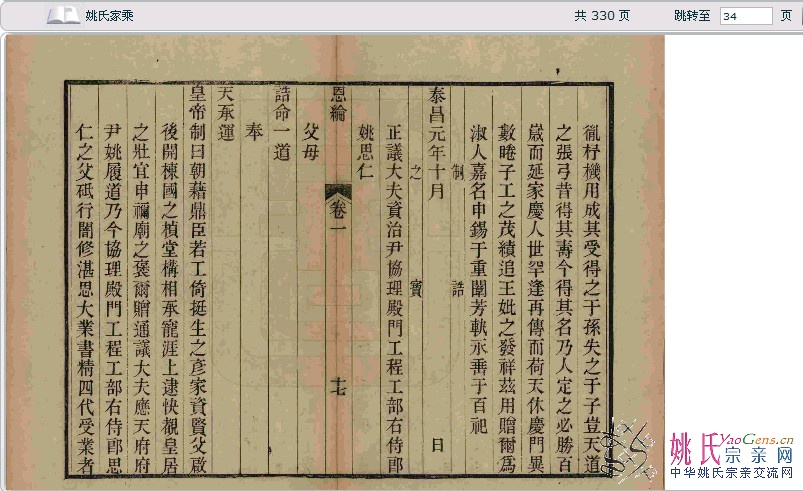 姚氏家乘
共 330 页
跳转至 34 页
胤杼機用成其受得之于孫失之于子豈天道
之張弓昔得其壽今得其名乃人定之必勝百
嵗而延家慶人世罕逢再傳而荷天休慶門異
數睠子工之茂績追王妣之發祥茲用贈爾為
淑人嘉名申錫于重闈芳軼永垂于百祀
制 誥
泰昌元年十月 日
之 寶
正議大夫資治尹協理殿門工程工部右侍郎
姚思仁
父母
誥命一道
恩綸 卷一 十七
奉
天承運
皇帝制曰朝藉鼎臣若工倚挺生之彥家資賢父啟
後開棟國之楨堂構相承寵涯上逮快覩皇居
之壯宜申禰廟之褒爾贈通議大夫應天府府
尹姚履道乃今協理殿門工程工部右侍郎思
仁之父砥行闇修湛思大業書精四代受業者
姚氏YaoGens.cn
宗亲网
中华姚氏宗亲交流网